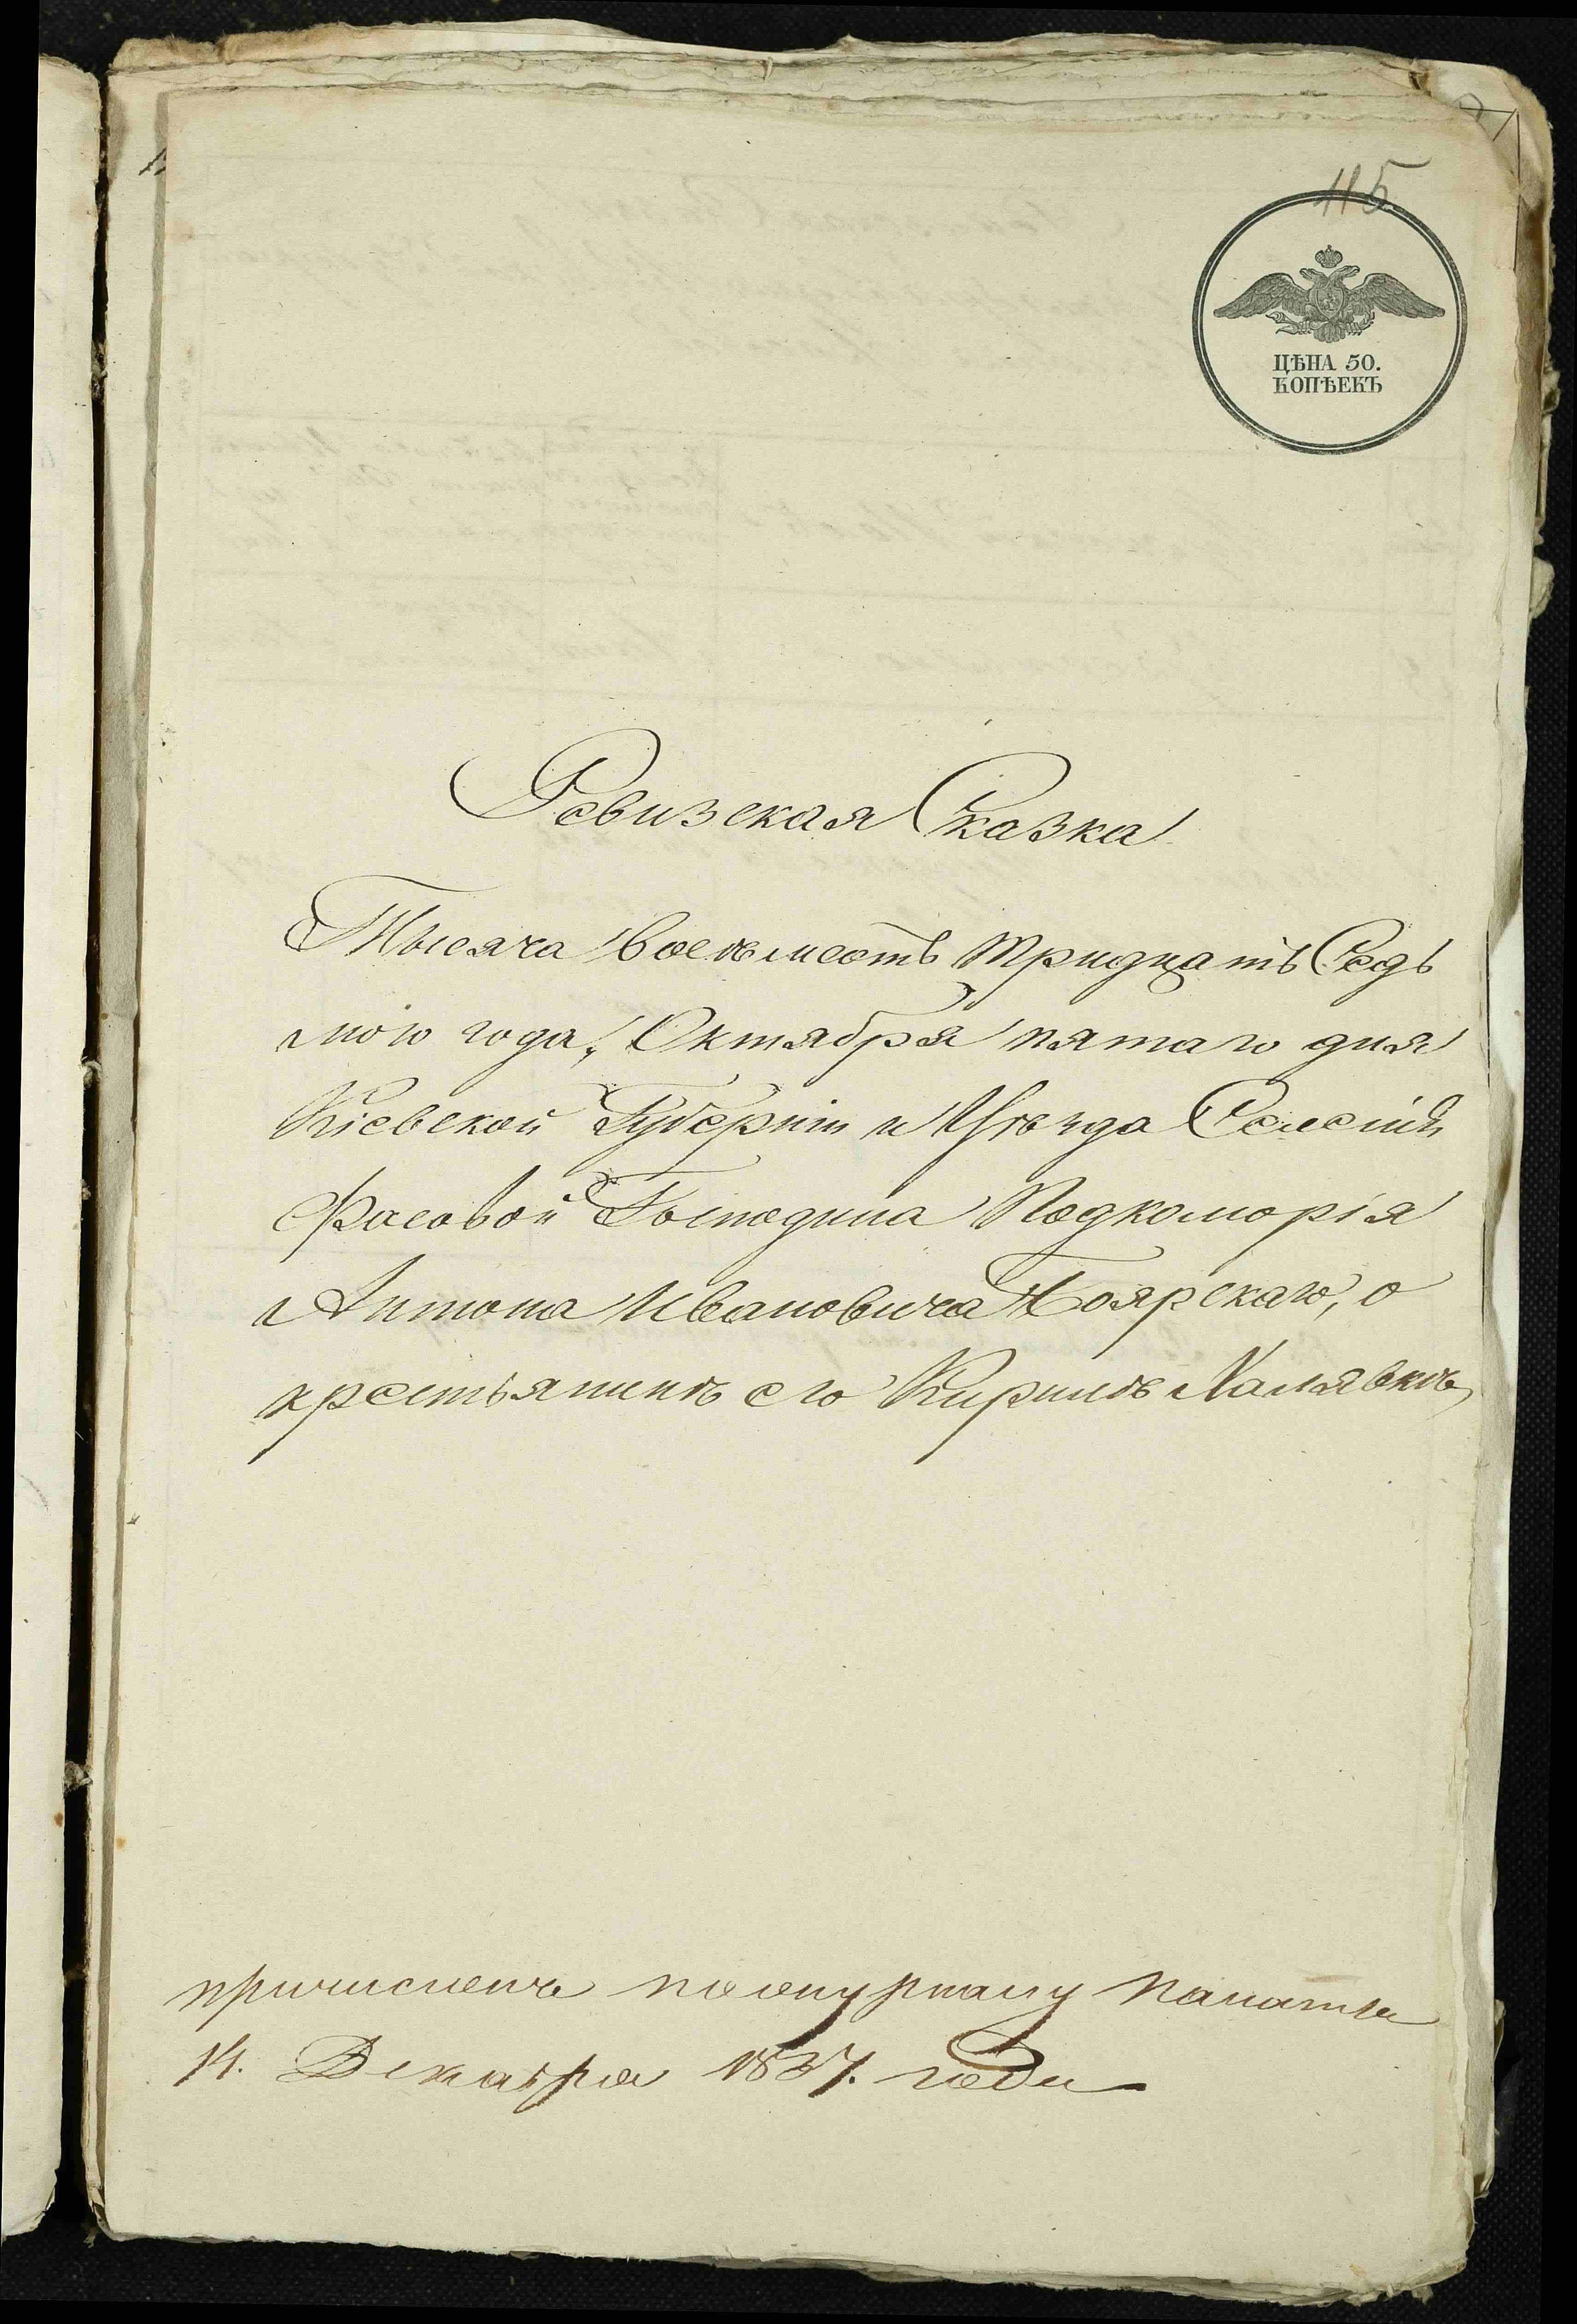 115
ЦѢНА 50.
КОПѢЕКЪ
Ревизская Сказка
Тысяча восемьсотъ тридцать Седь
мого года, Октября пятаго дня
Кіевской Губерніи и Уѣзда Селенія
Фасовой Господина Подкоморія
Антона Ивановича Боярскаго, о
крестьянинѣ его Кирилѣ Халявкѣ,
причисленъ по журналу палаты
14. Декабря 1837. года